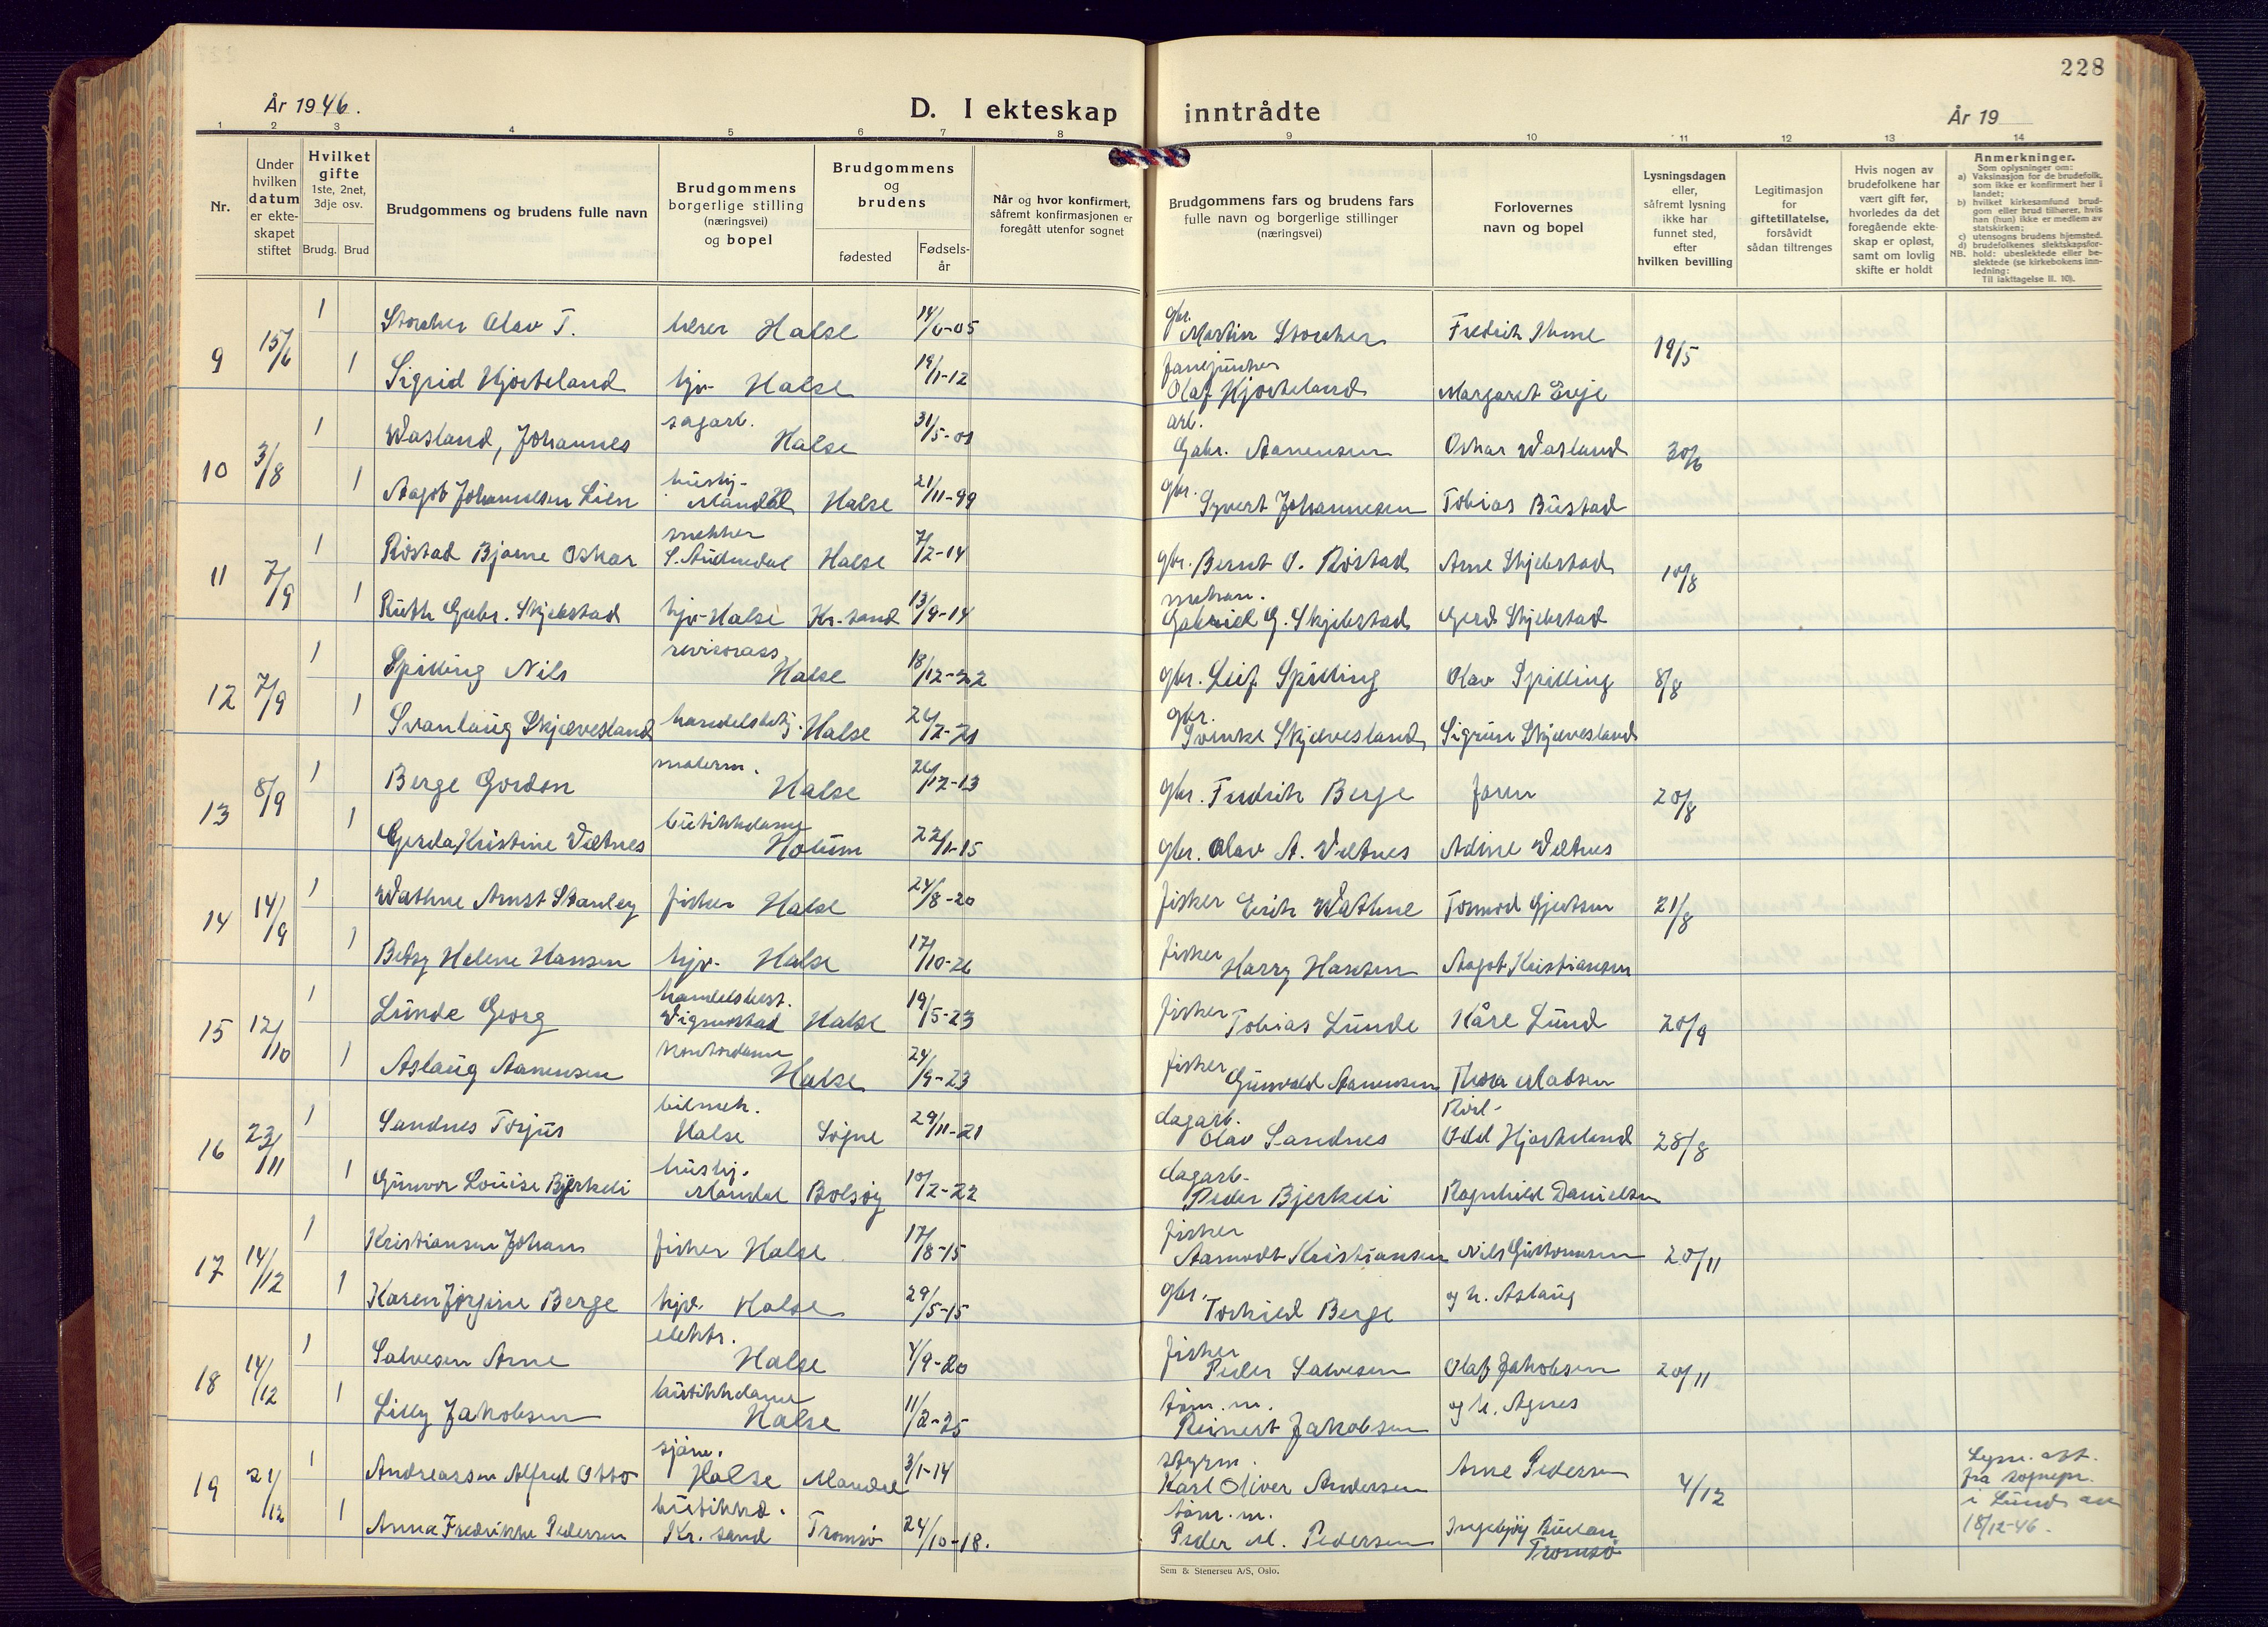 228
År 1946.
D. I ekteskap inntrådte
År 19
1 2 3 4 5 6 7 8 9 10 11 12 13 14
Nr.
Under
hvilken
datum
er ekte-
skapet
stiftet
Hvilket
gifte
1ste, 2net,
3dje osv.
Brudg. Brud
Brudgommens og brudens fulle navn
Brudgommens
borgerlige stilling
(næringsvei)
og bopel
Brudgommens
og
brudens
fødested
Fødsels-
år
Når og hvor konfirmert,
såfremt konfirmasjonen er
foregått utenfor sognet
Brudgommens fars og brudens fars
fulle navn og borgerlige stillinger
(næringsvei)
Forlovernes
navn og bopel
Lysningsdagen
eller,
såfremt lysning
ikke har
funnet sted,
efter
hvilken bevilling
Legitimasjon
for
giftetillatelse,
forsåvidt
sådan tiltrenges
Hvis nogen av
brudefolkene har
vært gift før,
hvorledes da det
foregående ekte-
skap er opløst,
samt om lovlig
skifte er holdt
Anmerkninger.
Som oplysninger om:
a) Vaksinasjon for de brudefolk,
som ikke er konfirmert her i
landet;
b) hvilket kirkesamfund brud-
gom eller brud tilhører, hvis
han (hun) ikke er medlem av
statskirken;
c) utensogns brudens hjemsted.
d) brudefolkenes slektskapsfor-
NB. hold: ubeslektede eller be-
slektede (se kirkebokens inn-
ledning:
Til iakttagelse II. 10).
9 15/6 1 Storaker Olav T. lærer Halse 14/6-05 gbr. Martin Storaker Fredrik Ihme 19/5
1 Sigrid Hjorteland hjv. Halse 19/1-12 fanejunker Olaf Hjorteland Margaret Eije
10 3/8 1 Wasland, Johannes sagarb. Halse 31/5-01 arb. Gabr. Aanensen Oskar Wasland 30/6
1 Aagot Johannesen Lien hushj. Mandal Halse 21/11-99 gbr. Syvert Johannesen Tobias Bustad
11 7/9 1 Röstad Bjarne Oskar snekker S. Audnedal Halse 7/2-14 gbr. Bernt O. Röstad Arne Skjebstad 10/8
1 Ruth Gabr. Skjebstad hjv. Halse Kr.-sand 13/9-14 mekan. Gabriel G. Skjebstad Gerd Skjebstad
12 7/9 1 Spilling Nils revisorass. Halse 18/12-22 gbr. Leif Spilling Olav Spilling 8/8
1 Svanlaug Skjævesland handelsbetj. Halse 26/2-21 gbr. Svenke Skjævesland Sigrun Skjævesland
13 8/9 1 Berge Gordon malerm. Halse 26/12-13 gbr. Fredrik Berge faren 20/8
1 Gerda Kristine Vætnes butikkdame Holum 22/1-15 gbr. Olav A. Vætnes Adine Vætnes
14 14/9 1 Wathne Arnst Stanley fisker Halse 24/8-20 fisker Erik Wathne Tormod Gjertsen 21/8
1 Betsy Helene Hansen hjv. Halse 17/10-26 fisker Harry Hansen Aagot Kristiansen
15 12/10 1 Lunde Georg handelsbest. Vigmostad Halse 19/5-23 fisker Tobias Lunde Kåre Lund 20/9
1 Aslaug Aanensen kontordame Halse 24/9-23 fisker Gunvald Aanensen Thora Madsen
16 23/11 1 Sandnes Torjus bilmek. Halse Søgne 29/11-21 dagarb. Olav Sandnes Odd Hjorteland 28/8
1 Gunvor Louise Bjerkeli hushj. Mandal Bolsøy 10/2-22 dagarb. Peder Bjerkeli Ragnhild Danielsen
17 14/12 1 Kristiansen Johan fisker Halse 17/8-15 fisker Aamodt Kristiansen Nils Guttormsen 20/11
1 Karen Jørgine Berge hjv. Halse 29/5-15 gbr. Torkild Berge og h. Aslaug
18 14/12 1 Salvesen Arne elektr. Halse 4/9-20 fisker Peder Salvesen Olaf Jakobsen 20/11
1 Lilly Jakobsen butikkdame Halse 11/2-25 töm.m. Reinert Jakobsen og h. Agnes
19 21/12 1 Andreassen Alfred Otto sjöm. Halse Mandal 3/1-14 styrm. Karl Oliver Andersen Arne Pedersen 4/12 Lysn. att. fra sognepr. i Lund av 18/12-46.
1 Anna Fredrikke Pedersen butikkd. Kr. sand Tromsö 24/10-18. töm.m. Peder M. Pedersen Tromsö
Sem & Stenersen A/S, Oslo.